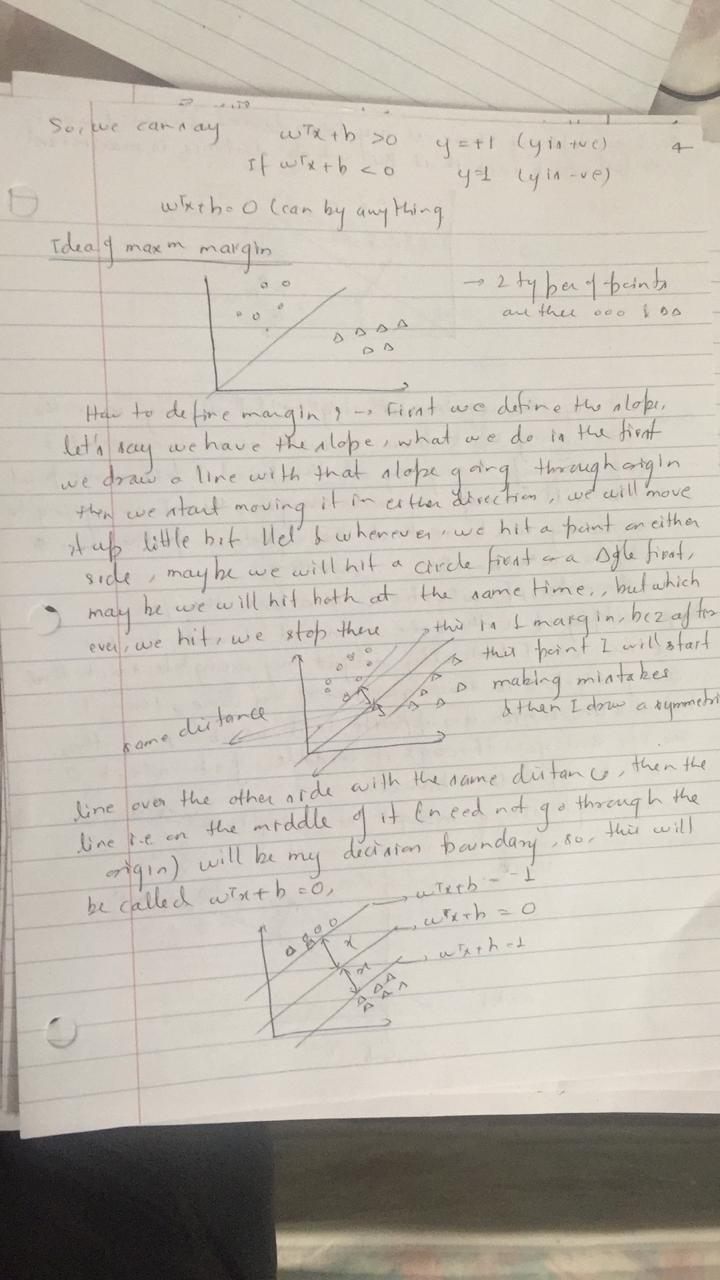 So, we can say wᵀx+b >0 y = +1 (y is +ve) 4
If wᵀx+b <0 y=1 (y is -ve)
wᵀx+b=0 (can by anything
Idea of maxm margin
→ 2 types of points
are there ooo & ΔΔ
How to define margin ? → First we define the slope,
let's say we have the slope, what we do is the first
we draw a line with that slope going through origin
then we start moving it in either direction, we will move
it up little bit llel & whenever we hit a point on either
side, maybe we will hit a circle first or a Δgle first,
may be we will hit both at the same time., but which
ever, we hit, we stop there this is 1 margin, bcz after
this point I will start
making mistakes
same distance & then I draw a symmetri
line over the other side with the same distance, then the
line i.e on the middle of it (need not go through the
origin) will be my decision boundary, so, this will
be called wᵀx+b =0,
wᵀx+b = -1
wᵀx+b = 0
x
x wᵀx+b=1